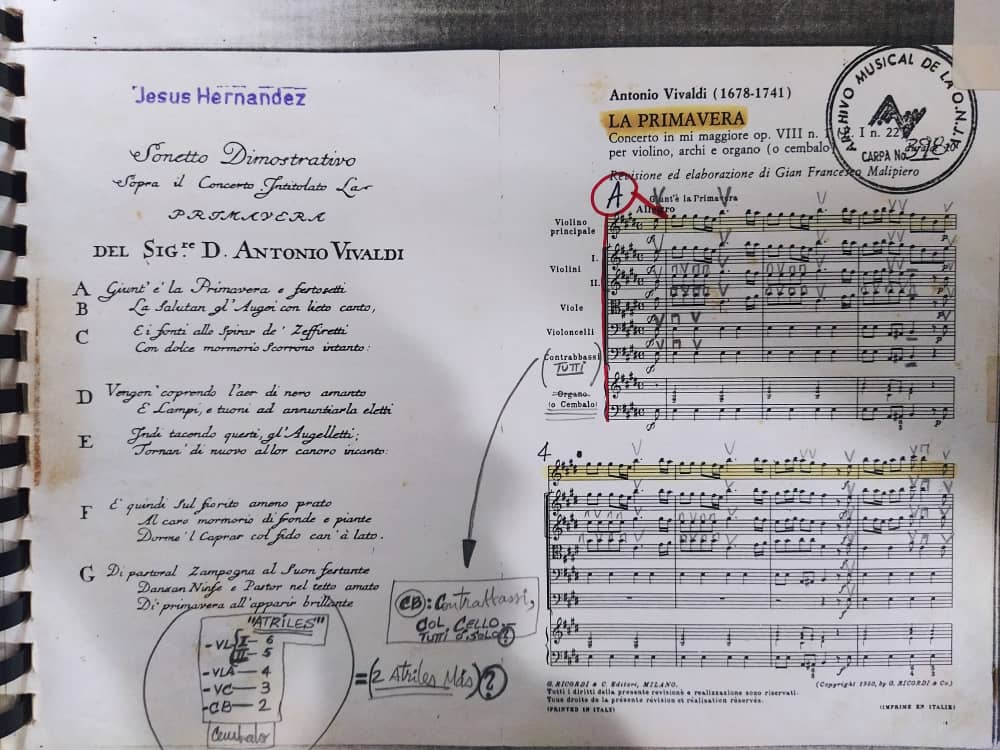 Jesus Hernandez
Sonetto Dimostrativo
Sopra il Concerto Intitolato La
PRIMAVERA
DEL SIG.re D. ANTONIO VIVALDI
A Giunt' é la Primavera e festosetti
B La Salutan gl' Augei con lieto canto,
C E i fonti allo Spirar de' Zeffiretti
Con dolce mormorio Scorrono intanto:
D Vengon' coprendo l'aer di nero amanto
E Lampi, e tuoni ad annuntiarla eletti
E Indi tacendo questi, gl' Augelletti;
Tornan' di nuovo al lor canoro incanto:
F E quindi Sul fiorito ameno prato
Al caro mormorio di fronde e piante
Dorme 'l Caprar col fido can' à lato.
G Di pastoral Zampogna al Suon festante
Danzan Ninfe e Pastor nel tetto amato
Di primavera all' apparir brillante
"ATRILES"
- VL I — 6
II — 5
- VLA — 4
- VC — 3
- CB — 2
Cembalo
= (2 Atriles Más) ?
CB: Contrabassi,
COL CELLO
TUTTI O SOLO ?
Antonio Vivaldi (1678-1741)
LA PRIMAVERA
Concerto in mi maggiore op. VIII n. 1 I n. 22
per violino, archi e organo (o cembalo)
Revisione ed elaborazione di Gian Francesco Malipiero
ARCHIVO MUSICAL DE LA O.N.J.
CARPA No. 398
A
Giunt'è la Primavera
Allegro
Violino
principale
I.
Violini
II.
Viole
Violoncelli
Contrabbassi
TUTTI
Organo
(o Cembalo)
4
G. RICORDI & C. Editori, MILANO.
Tutti i diritti della presente revisione e realizzazione sono riservati.
Tous droits de la présente révision et réalisation réservés.
(PRINTED IN ITALY)
(Copyright 1950, by G. RICORDI & Co.)
(IMPRIMÉ EN ITALIE)